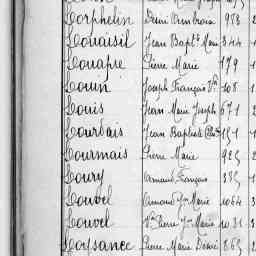 Lorphelin Demi Ambroise 958 2
Louaisil Jean Bapte Marie 344 1
Louapre Pierre Marie 179 1
Louin Joseph François 508 1
Louis Jean Marie Joseph 671 2
Lourdais Jean Baptiste
Lourmais Pierre Marie 925 2
Loury Armand François 335 1
Louvel Armand Marie 1064 3
Louvel Pierre Marie 1031 3
Loysance Pierre Marie Désiré 865 2